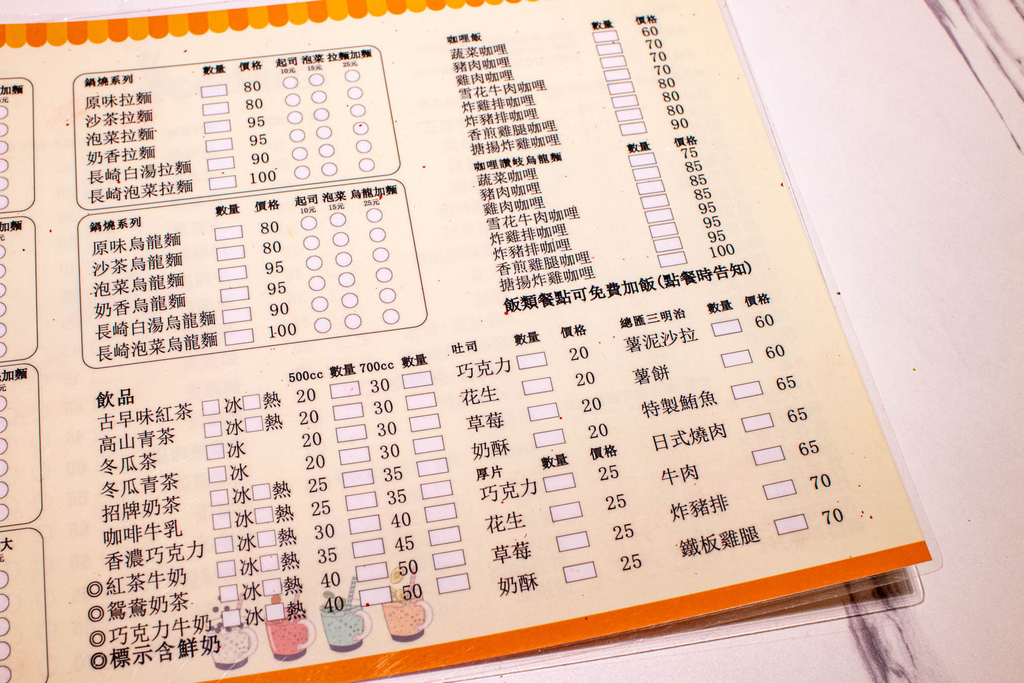 加麵
元
加麵
元
加麵
元
大
元
鍋燒系列 數量 價格 起司 泡菜 拉麵加麵
10元 15元 25元
原味拉麵 80
沙茶拉麵 80
泡菜拉麵 95
奶香拉麵 95
長崎白湯拉麵 90
長崎泡菜拉麵 100
鍋燒系列 數量 價格 起司 泡菜 烏龍加麵
10元 15元 25元
原味烏龍麵 80
沙茶烏龍麵 80
泡菜烏龍麵 95
奶香烏龍麵 95
長崎白湯烏龍麵 90
長崎泡菜烏龍麵 100
飲品 500cc 數量 700cc 數量
古早味紅茶 冰 熱 20 30
高山青茶 冰 熱 20 30
冬瓜茶 冰 20 30
冬瓜青茶 冰 20 30
招牌奶茶 冰 熱 25 35
咖啡牛乳 冰 熱 25 35
香濃巧克力 冰 熱 30 40
◎紅茶牛奶 冰 熱 35 45
◎鴛鴦奶茶 冰 熱 40 50
◎巧克力牛奶 冰 熱 40 50
◎標示含鮮奶
咖哩飯 數量 價格
蔬菜咖哩 60
豬肉咖哩 70
雞肉咖哩 70
雪花牛肉咖哩 70
炸雞排咖哩 80
炸豬排咖哩 80
香煎雞腿咖哩 80
搪揚炸雞咖哩 90
咖哩讚岐烏龍麵 數量 價格
蔬菜咖哩 75
豬肉咖哩 85
雞肉咖哩 85
雪花牛肉咖哩 85
炸雞排咖哩 95
炸豬排咖哩 95
香煎雞腿咖哩 95
搪揚炸雞咖哩 100
飯類餐點可免費加飯(點餐時告知)
吐司 數量 價格
巧克力 20
花生 20
草莓 20
奶酥 20
厚片 數量 價格
巧克力 25
花生 25
草莓 25
奶酥 25
總匯三明治 數量 價格
薯泥沙拉 60
薯餅 60
特製鮪魚 65
日式燒肉 65
牛肉 65
炸豬排 70
鐵板雞腿 70